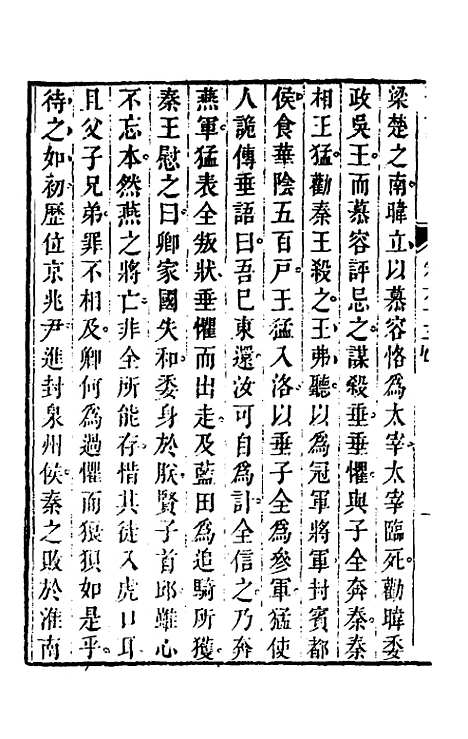 梁楚之南暐立以慕容恪爲太宰太宰臨死勸暐委
政吳王而慕容評忌之謀殺垂垂懼與子全奔秦秦
相王猛勸秦王殺之王弗聽以爲冠軍將軍封賓都
侯食華陰五百戸王猛入洛以垂子全爲參軍猛使
人詭傳垂語曰吾已東還汝可自爲計全信之乃奔
燕軍猛表全叛狀垂懼而出走及藍田爲追騎所獲
秦王慰之曰卿家國失和委身於朕賢子首邱雖心
不忘本然燕之將亡非全所能存惜其徒入虎口耳
且父子兄弟罪不相及卿何爲過懼而狼狽如是乎
待之如初歷位京兆尹進封泉州侯秦之敗於淮南